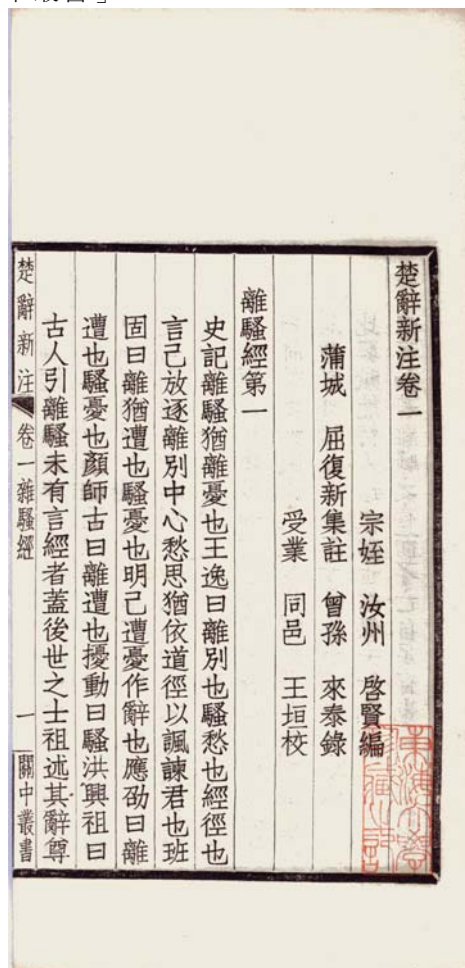 楚辭新注卷一
宗姪 汝州 啓賢編
蒲城 屈復新集註 曾孫 來泰錄
受業 同邑 王垣校
離騷經第一
史記離騷猶離憂也王逸曰離別也騷愁也經徑也
言己放逐離別中心愁思猶依道徑以諷諫君也班
固曰離猶遭也騷憂也明己遭憂作辭也應劭曰離
遭也騷憂也顏師古曰離遭也擾動曰騷洪興祖曰
古人引離騷未有言經者蓋後世之士祖述其辭尊
楚辭新注 卷一離騷經 一 關中叢書